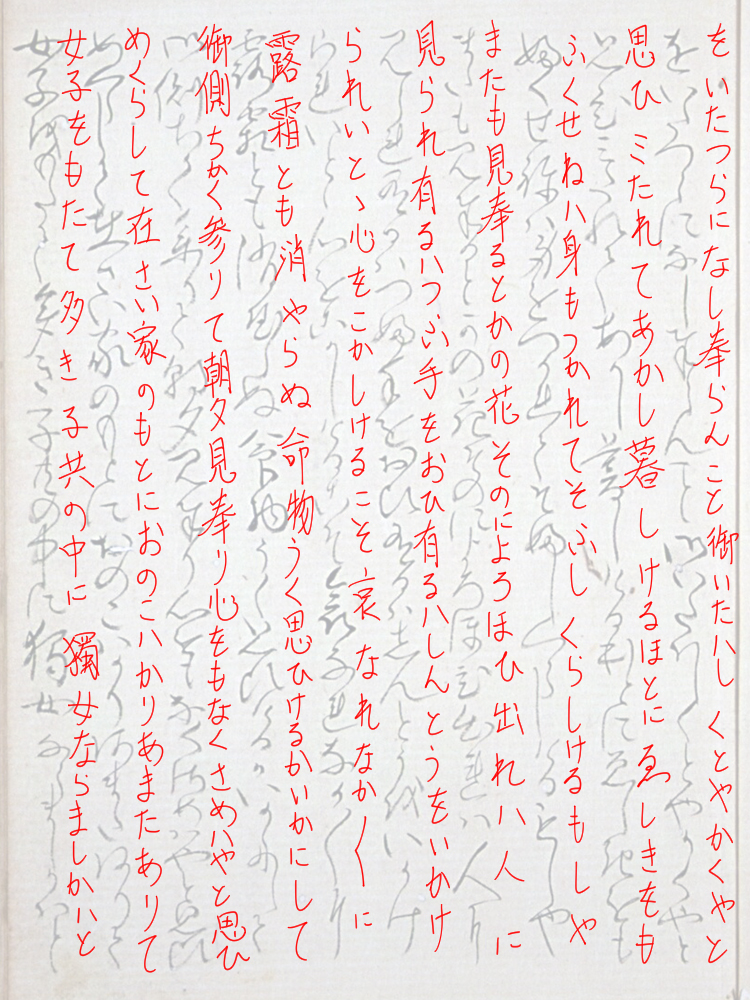 をいたつらになし奉らんこと御いたハしくとやかくやと
思ひミたれてあかし暮しけるほとにゑしきをも
ふくせねハ身もつかれてそふしくらしけるもしや
またも見奉るとかの花そのによろほひ出れハ人に
見られ有るハつふ手をおひ有るハしんとうをいかけ
られいとゝ心をこかしけるこそ哀なれなか〱に
露霜とも消やらぬ命物うく思ひけるかいかにして
御側ちかく参りて朝夕見奉り心をもなくさめハやと思ひ
めくらして在さい家のもとにおのこハかりあまたありて
女子をもたて多き子共の中に獨女ならましかハと